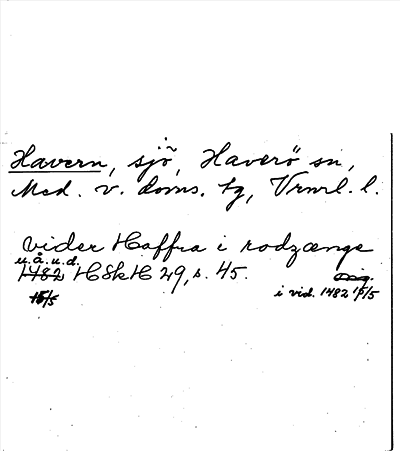 Havern, sjö, Haverö sn,
Med. v. doms. tg, Vrnrl. l.
vider Haffra i rodzænge
u.å.u.d.
1482 HSkH 29, s. 45.
i vid. 1482 15/5
15/5